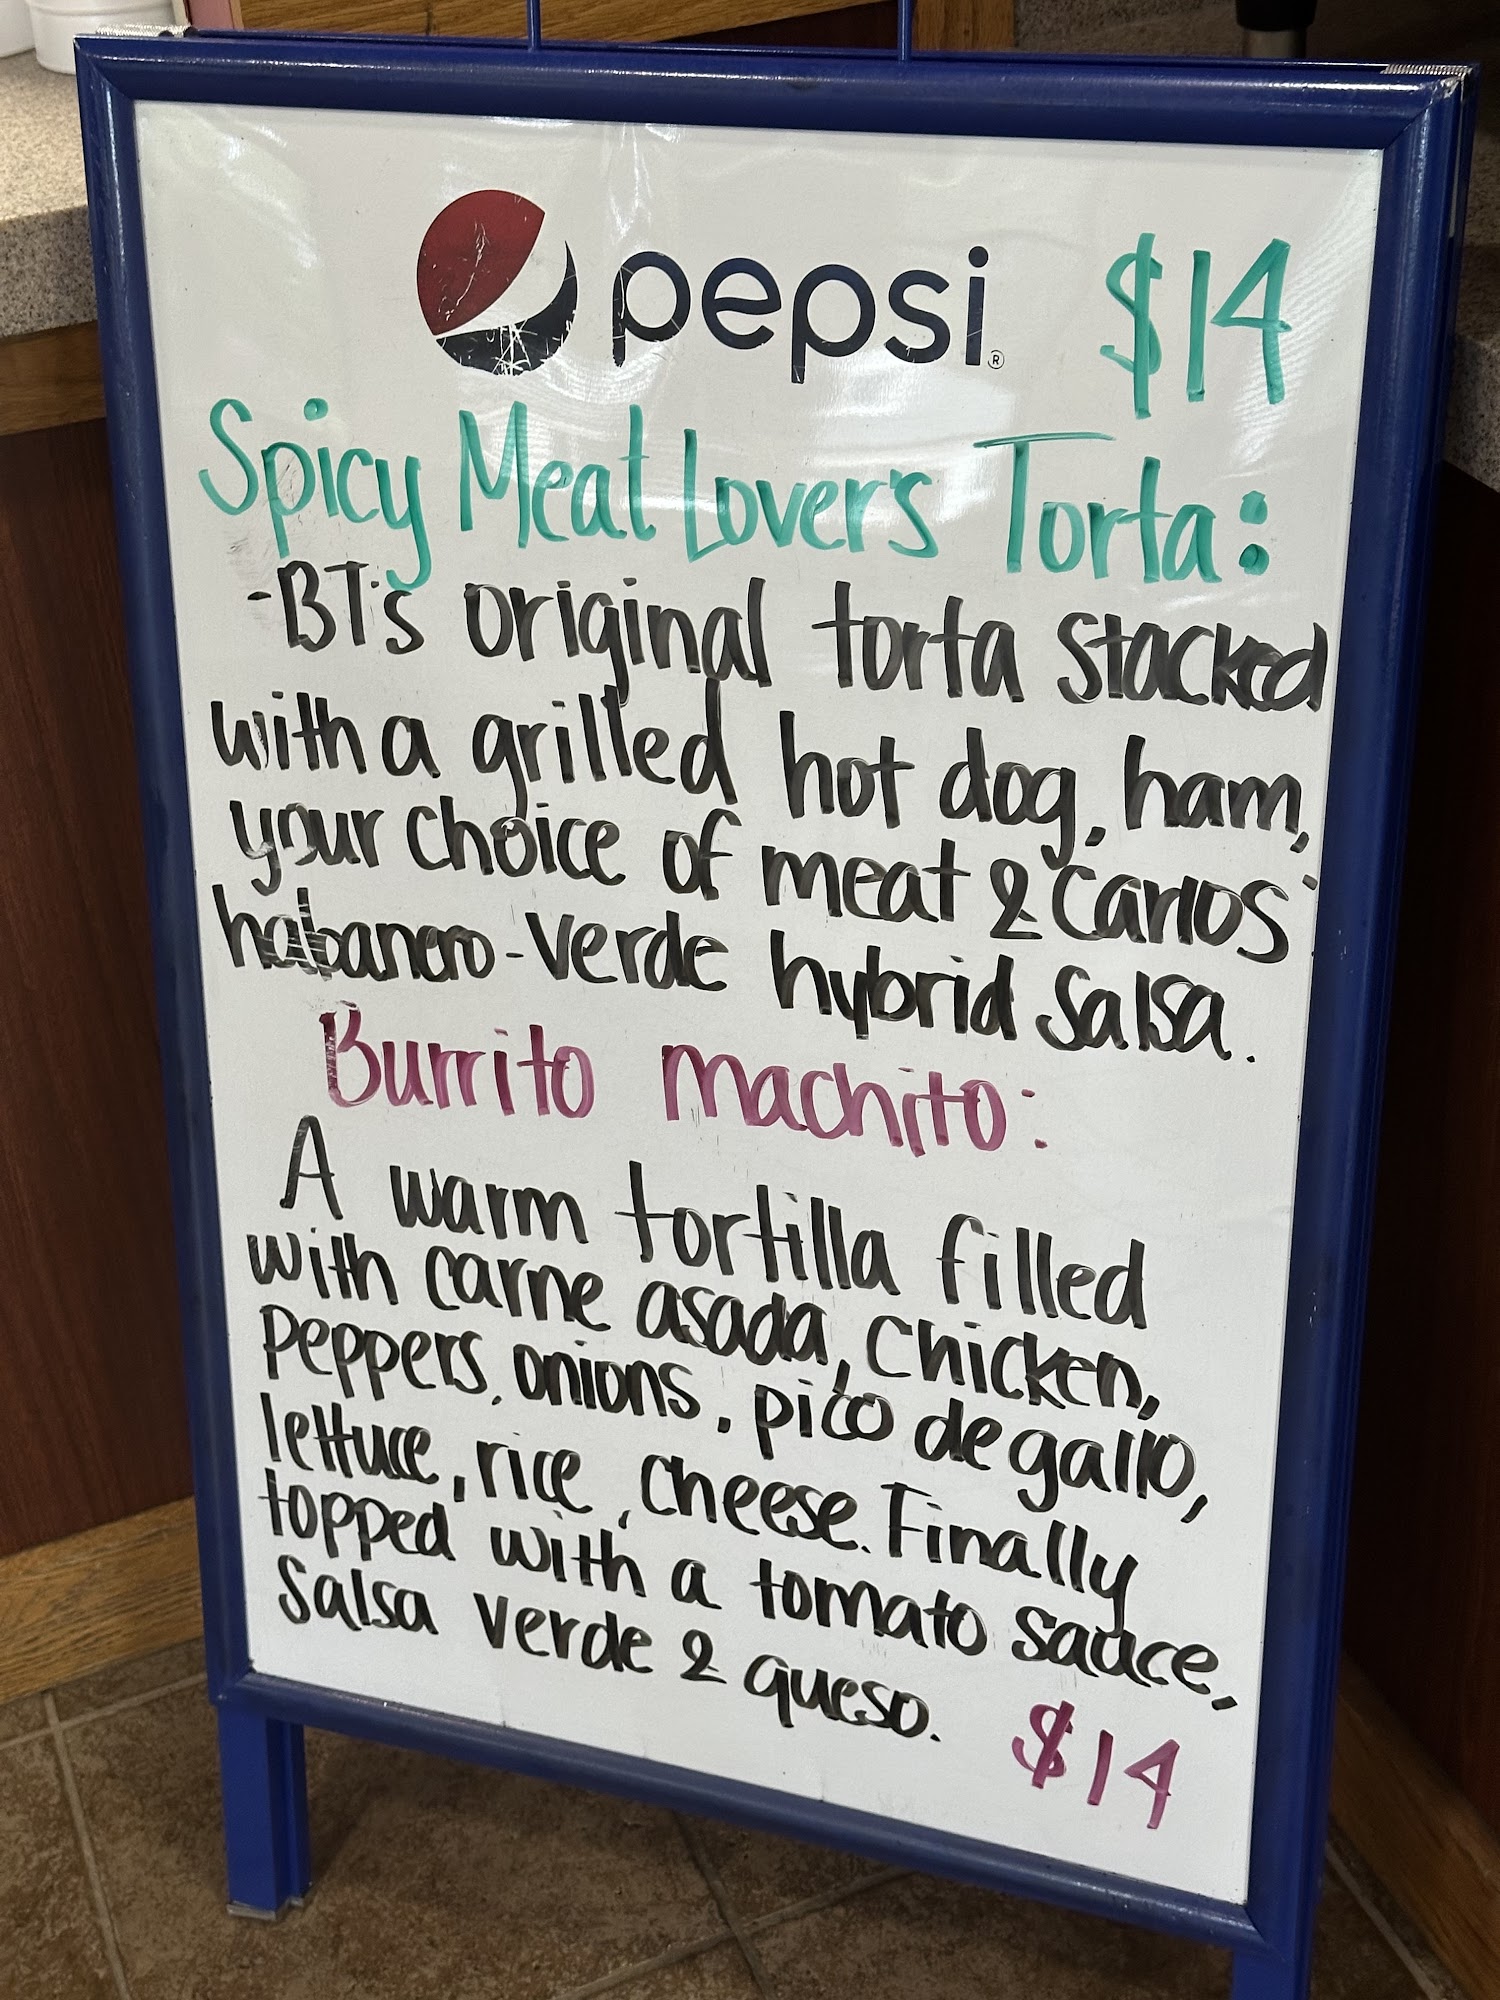 pepsi® $14
Spicy Meat Lover's Torta:
-BT's original torta stacked
with a grilled hot dog, ham,
your choice of meat & Carlos'
habanero-verde hybrid salsa.
Burrito machito:
A warm tortilla filled
with carne asada, chicken,
peppers, onions, pico de gallo,
lettuce, rice, cheese. Finally
topped with a tomato sauce,
salsa verde & queso.
$14